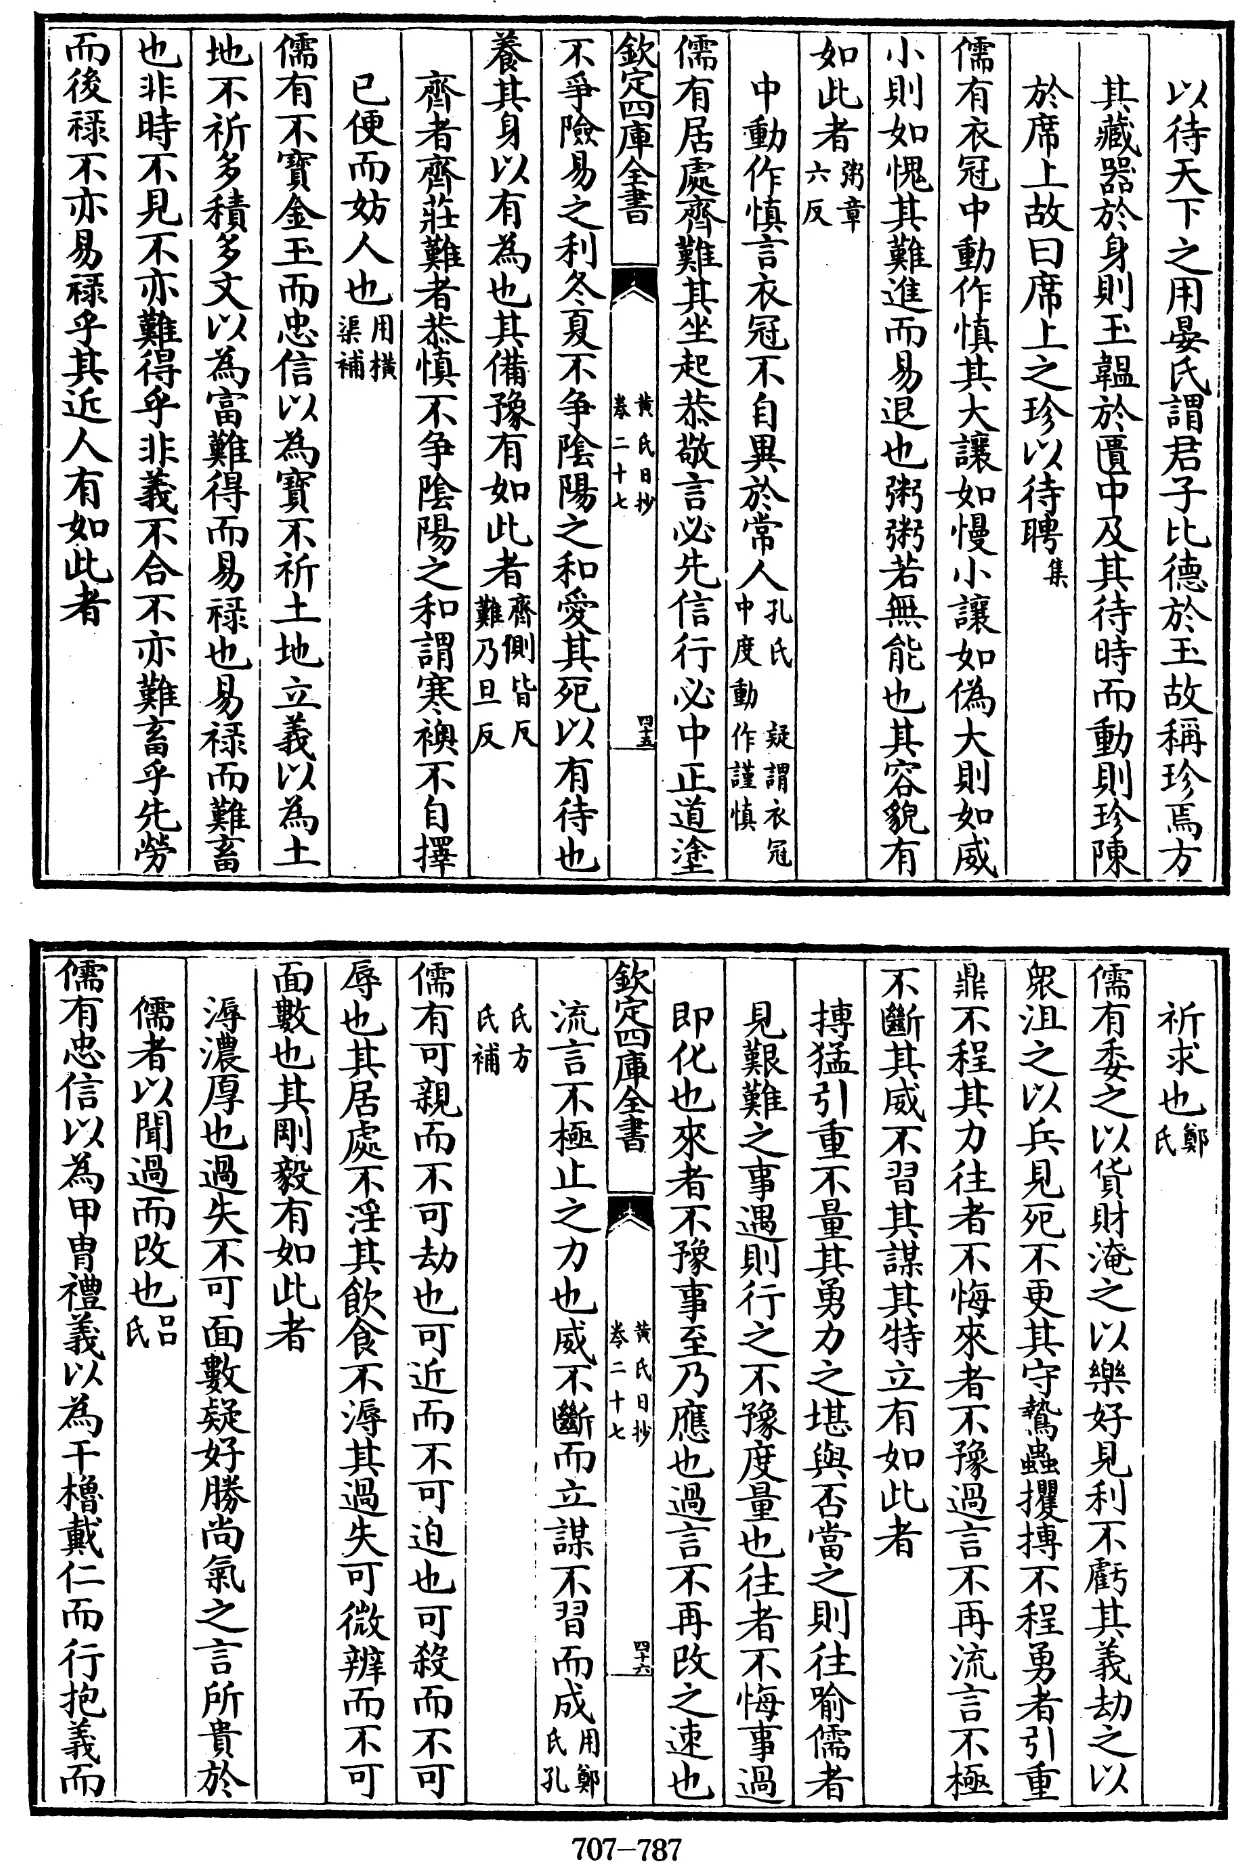 以待天下之用晏氏謂君子比德於玉故稱珍焉方
其藏器於身則玉韞於匵中及其待時而動則珍陳
於席上故曰席上之珍以待聘集
儒有衣冠中動作慎其大讓如慢小讓如偽大則如威
小則如愧其難進而易退也粥粥若無能也其容貌有
如此者粥章六反
中動作慎言衣冠不自異於常人孔氏疑謂衣冠中度動作謹慎
儒有居處齊難其坐起恭敬言必先信行必中正道塗
欽定四庫全書 黄氏日抄卷二十七 四十五
不爭險易之利冬夏不争陰陽之和愛其死以有待也
養其身以有為也其備豫有如此者齊側皆反難乃旦反
齊者齊莊難者恭慎不争陰陽之和謂寒襖不自擇
已便而妨人也用橫渠補
儒有不寳金玉而忠信以為寳不祈土地立義以為土
地不祈多積多文以為富難得而易禄也易禄而難畜
也非時不見不亦難得乎非義不合不亦難畜乎先勞
而後禄不亦易禄乎其近人有如此者
祈求也鄭氏
儒有委之以貨財淹之以樂好見利不虧其義劫之以
衆沮之以兵見死不更其守鷙蟲攫搏不程勇者引重
鼎不程其力往者不悔來者不豫過言不再流言不極
不斷其威不習其謀其特立有如此者
搏猛引重不量其勇力之堪與否當之則往喻儒者
見艱難之事遇則行之不豫度量也往者不悔事過
即化也來者不豫事至乃應也過言不再改之速也
欽定四庫全書 黄氏日抄卷二十七 四十六
流言不極止之力也威不斷而立謀不習而成用鄭氏孔
氏方氏補
儒有可親而不可劫也可近而不可迫也可殺而不可
辱也其居處不淫其飲食不溽其過失可微辨而不可
面數也其剛毅有如此者
溽濃厚也過失不可面數疑好勝尚氣之言所貴於
儒者以聞過而改也吕氏
儒有忠信以為甲胄禮義以為干櫓戴仁而行抱義而
707-787